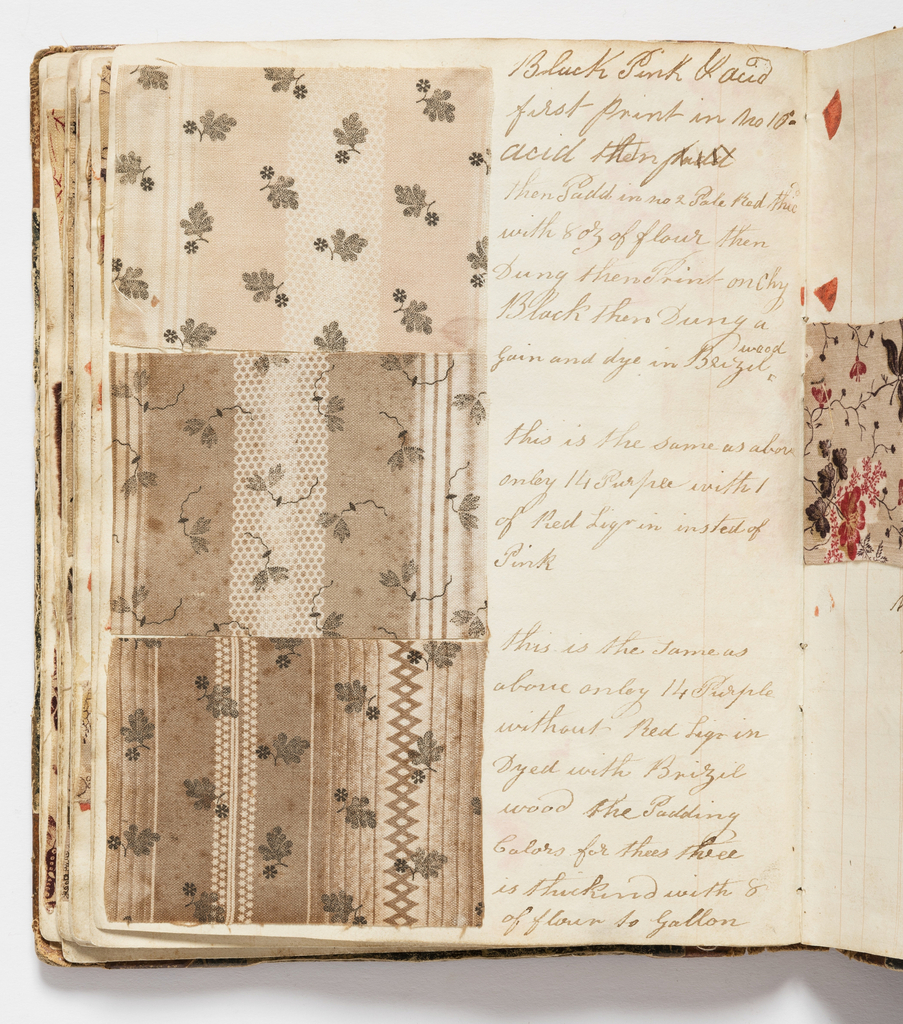 Black Pink & acid
first Print in No 10
acid then
then Padd in no 2 Pale Red this
with 8 oz of flour then
Dung then Print on Chy
Black then Dung a
gain and dye in Brizil wood
this is the same as above
onley 14 Purple with 1
of Red Liqr in insted of
Pink
this is the same as
above onley 14 Purple
without Red Liqr in
Dyed with Brizil
wood the Padding
Colors for thees three
is thickind with 8
of flour to Gallon